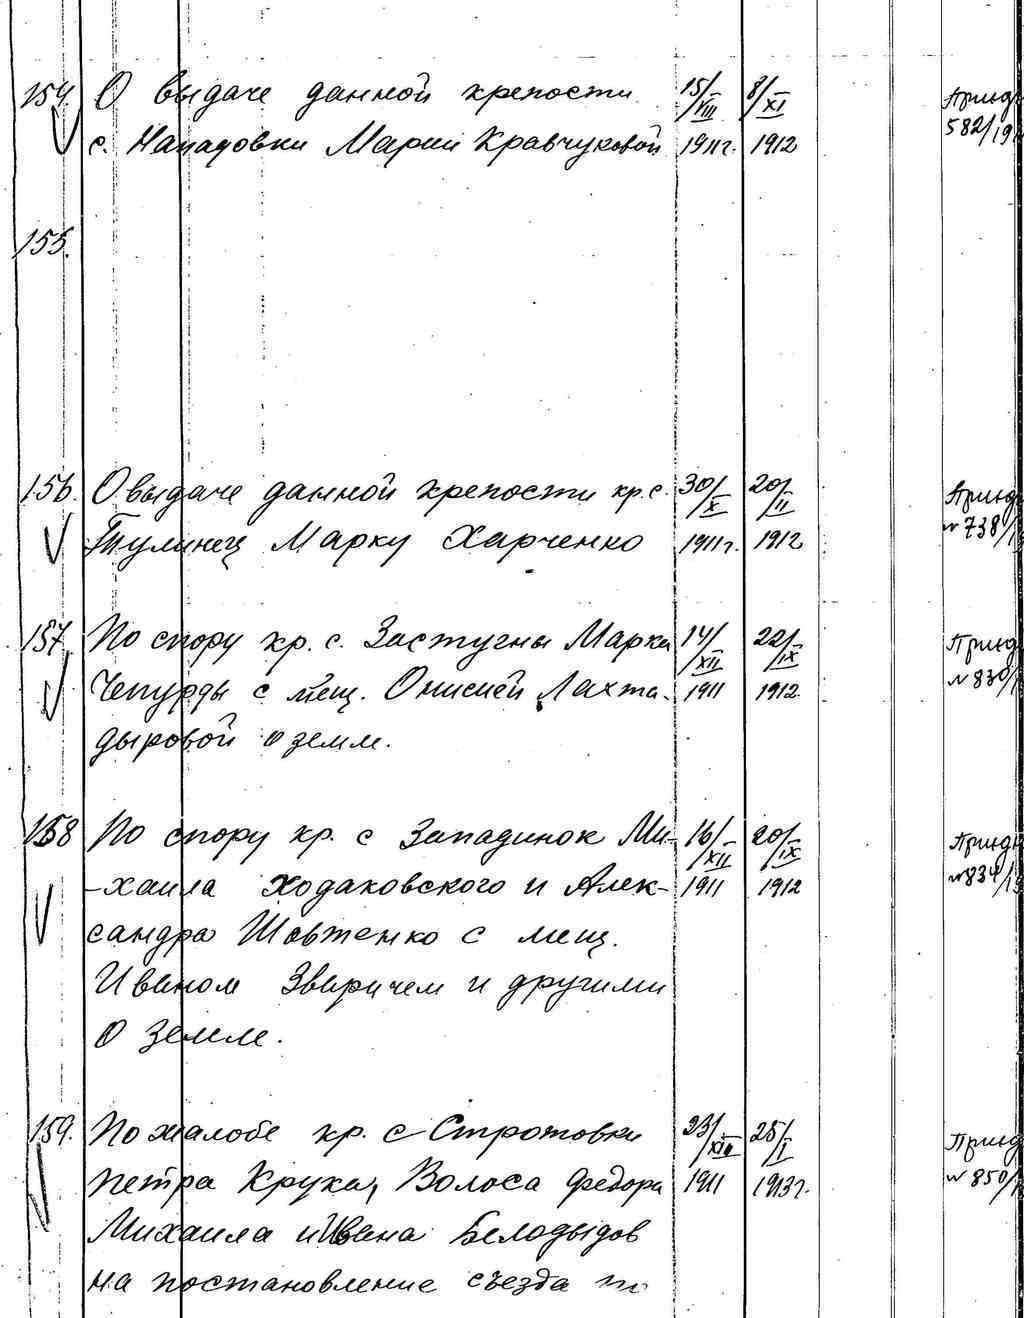 154. О выдаче данной крепости 15/VIII 8/XI
с. Нападовки Марии Кравчуковой 1911г. 1912
582/19
155.
156. О выдаче данной крепости кр. с. 30/X 20/II
Тулинец Марку Харченко 1911г. 1912
№738/1
157. По спору кр. с. Застугны Марка 14/XII 22/IX
Чепурды с мещ. Онисией Лахта- 1911 1912
№830/1
дыровой о земле.
158 По спору кр. с Западинок Ми- 16/XII 20/IX
-хаила Ходаковского и Алек- 1911 1912
№834/19
сандра Шевженко с мещ.
Иваном Зваричем и другими
о земле.
159. По жалобе кр. с Стротовки 23/XII 25/I
Петра Крука, Волоса Федора 1911 1913г.
№850/1
Михаила и Ивана Белодыдов
на постановление съезда по